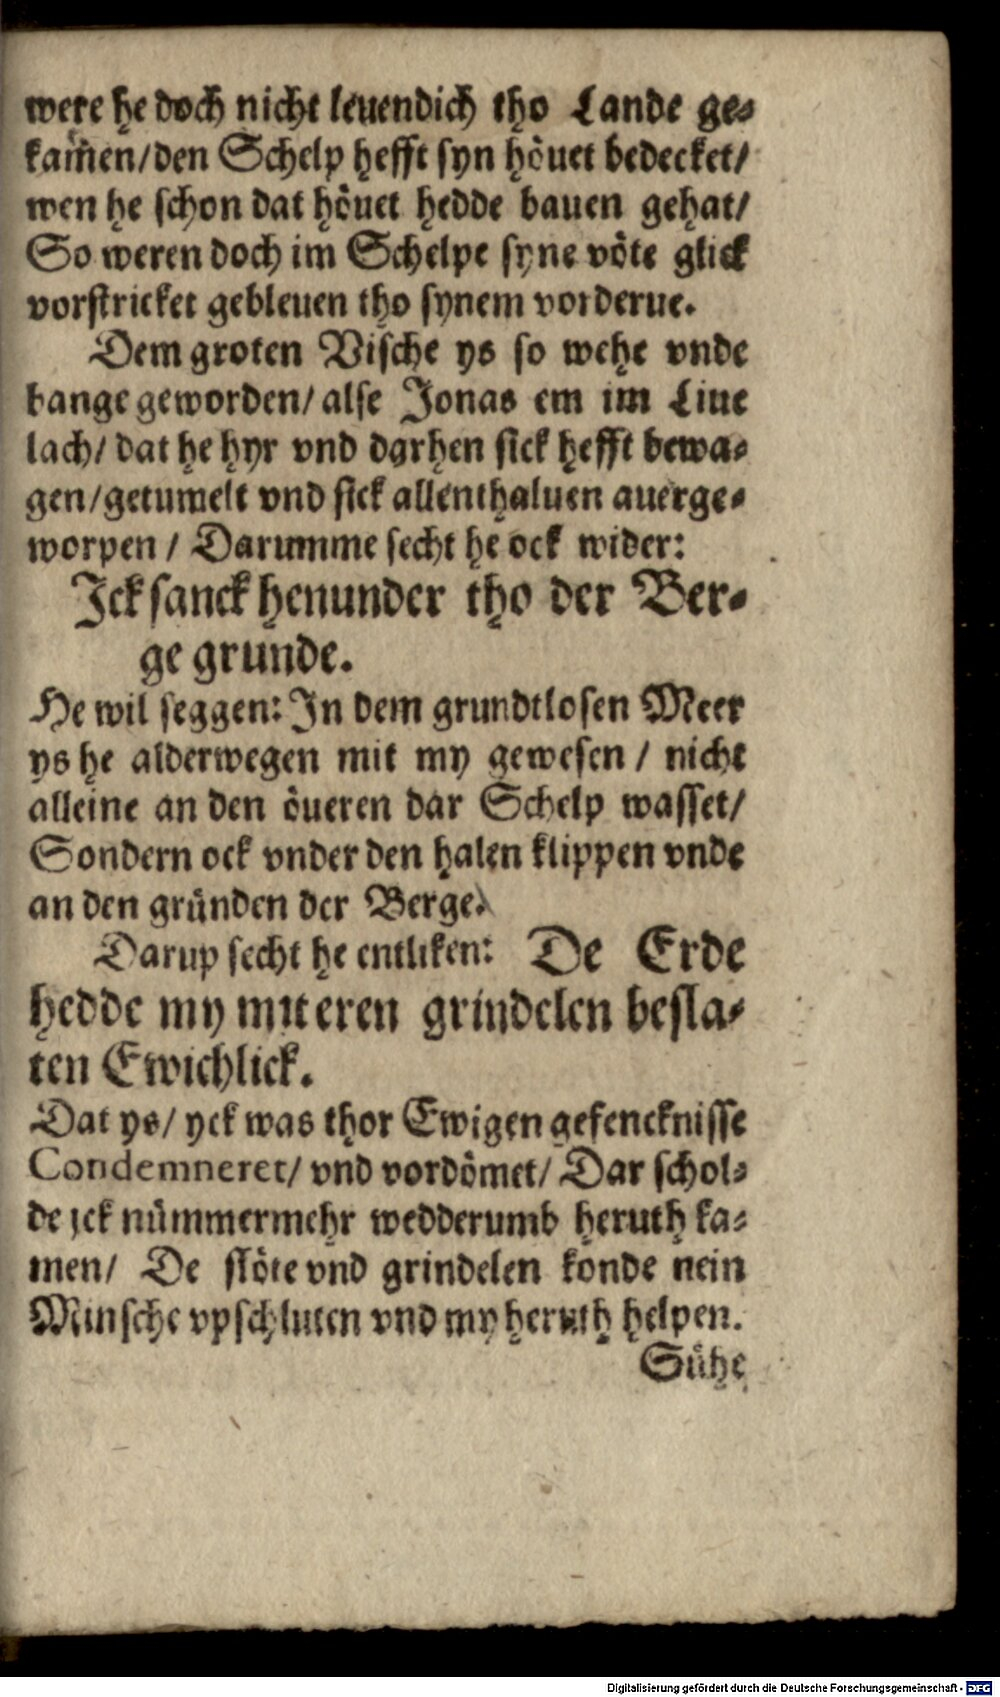 were he doch nicht leuendich tho Lande ge⸗
kam̃en/den Schelp hefft syn hoͤuet bedecket/
wen he schon dat hoͤuet hedde bauen gehat/
So weren doch im Schelpe syne voͤte glick
vorstricket gebleuen tho synem vorderue.
Dem groten Vische ys so wehe vnde
bange geworden/ alse Jonas em im Liue
lach/ dat he hyr vnd darhen sick hefft bewa⸗
gen/getumelt vnd sick allenthaluen auerge⸗
worpen / Darumme secht he ock wider:
Jck sanck henunder tho der Ber⸗
ge grunde.
He wil seggen: Jn dem grundtlosen Meer
ys he alderwegen mit my gewesen / nicht
alleine an den oͤueren dar Schelp wasset/
Sondern ock vnder den halen klippen vnde
an den gruͤnden der Berge.
Darup secht he entliken: De Erde
hedde my mit eren grindelen besla⸗
ten Ewichlick.
Dat ys/ yck was thor Ewigen gefencknisse
Condemneret/ vnd vordoͤmet/ Dar schol⸗
de jck nuͤmmermehr wedderumb heruth ka⸗
men/ De sloͤte vnd grindelen konde nein
Minsche vpschluten vnd my heruth helpen.
Suͤhe
Digitalisierung gefördert durch die Deutsche Forschungsgemeinschaft - DFG